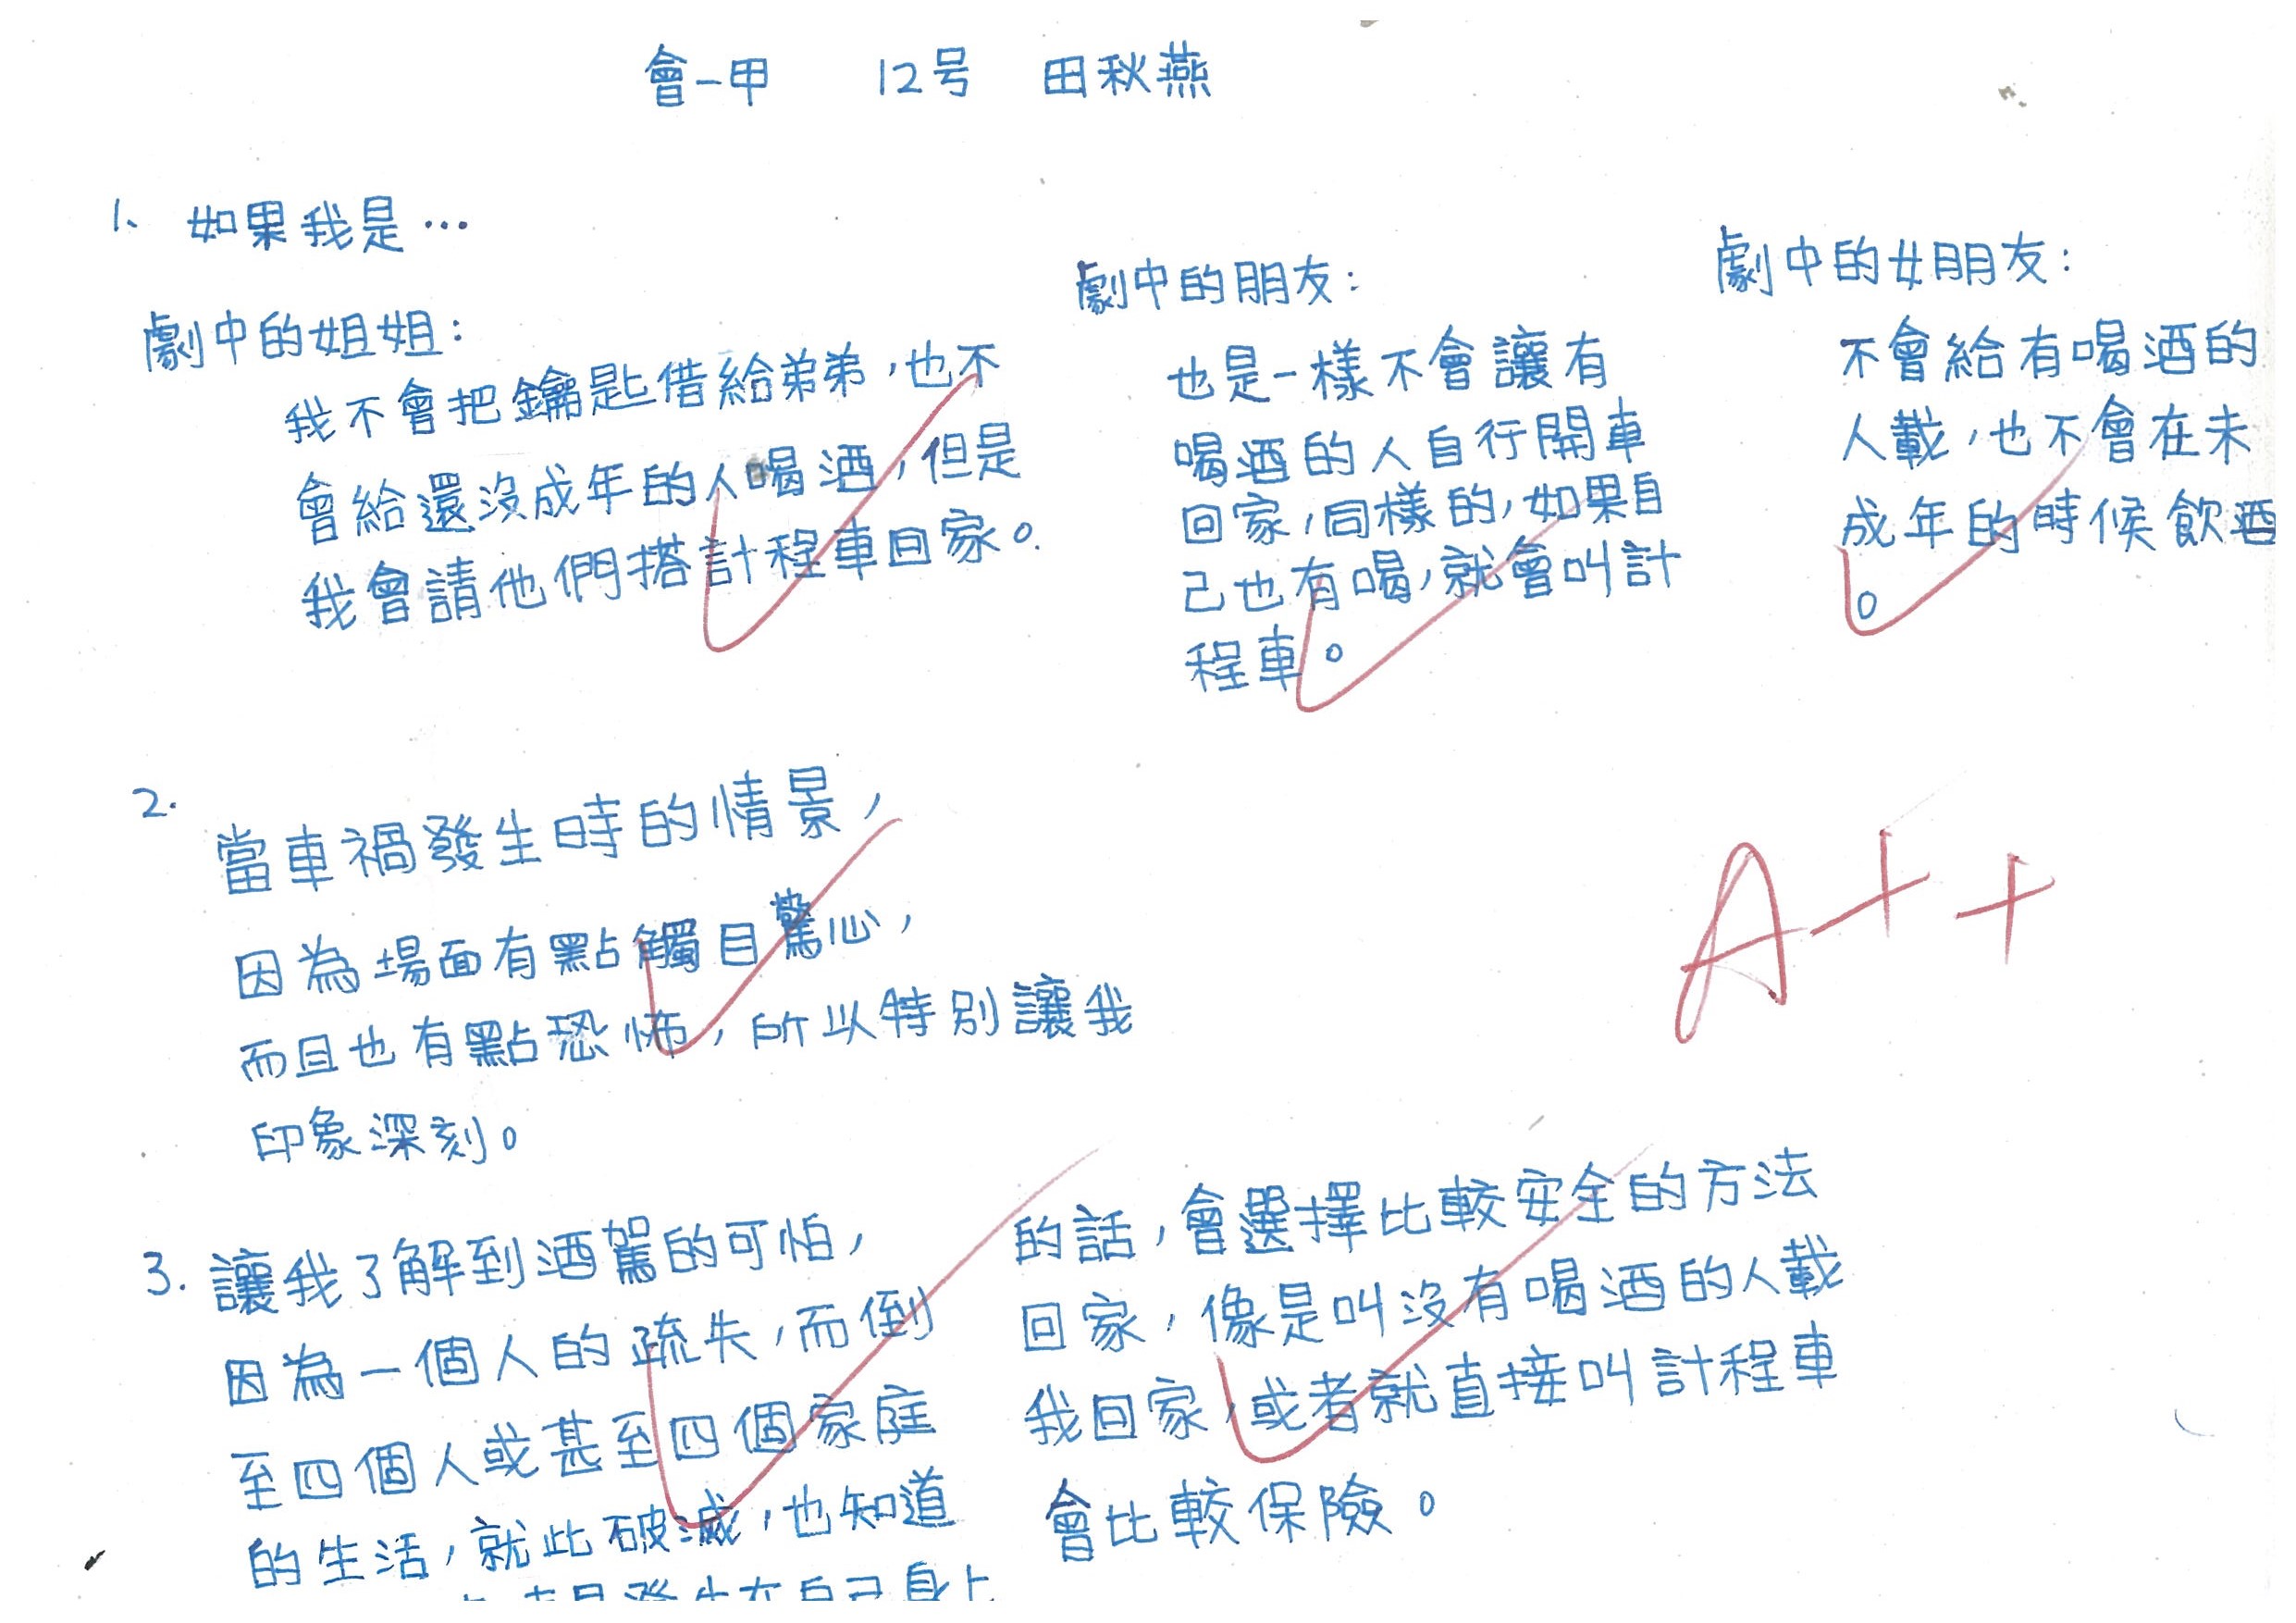 會一甲 12号 田秋燕
1、如果我是…
劇中的姐姐：
我不會把鑰匙借給弟弟，也不
會給還沒成年的人喝酒，但是
我會請他們搭計程車回家。
劇中的朋友：
也是一樣不會讓有
喝酒的人自行開車
回家，同樣的，如果自
己也有喝，就會叫計
程車。
劇中的女朋友：
不會給有喝酒的
人載，也不會在未
成年的時候飲酒
。
2.
當車禍發生時的情景，
因為場面有點觸目驚心，
而且也有點恐怖，所以特別讓我
印象深刻。
A++
3. 讓我了解到酒駕的可怕，
因為一個人的疏失，而倒
至四個人或甚至四個家庭
的生活，就此破滅，也知道
發生在自己身上
的話，會選擇比較安全的方法
回家，像是叫沒有喝酒的人載
我回家，或者就直接叫計程車
會比較保險。